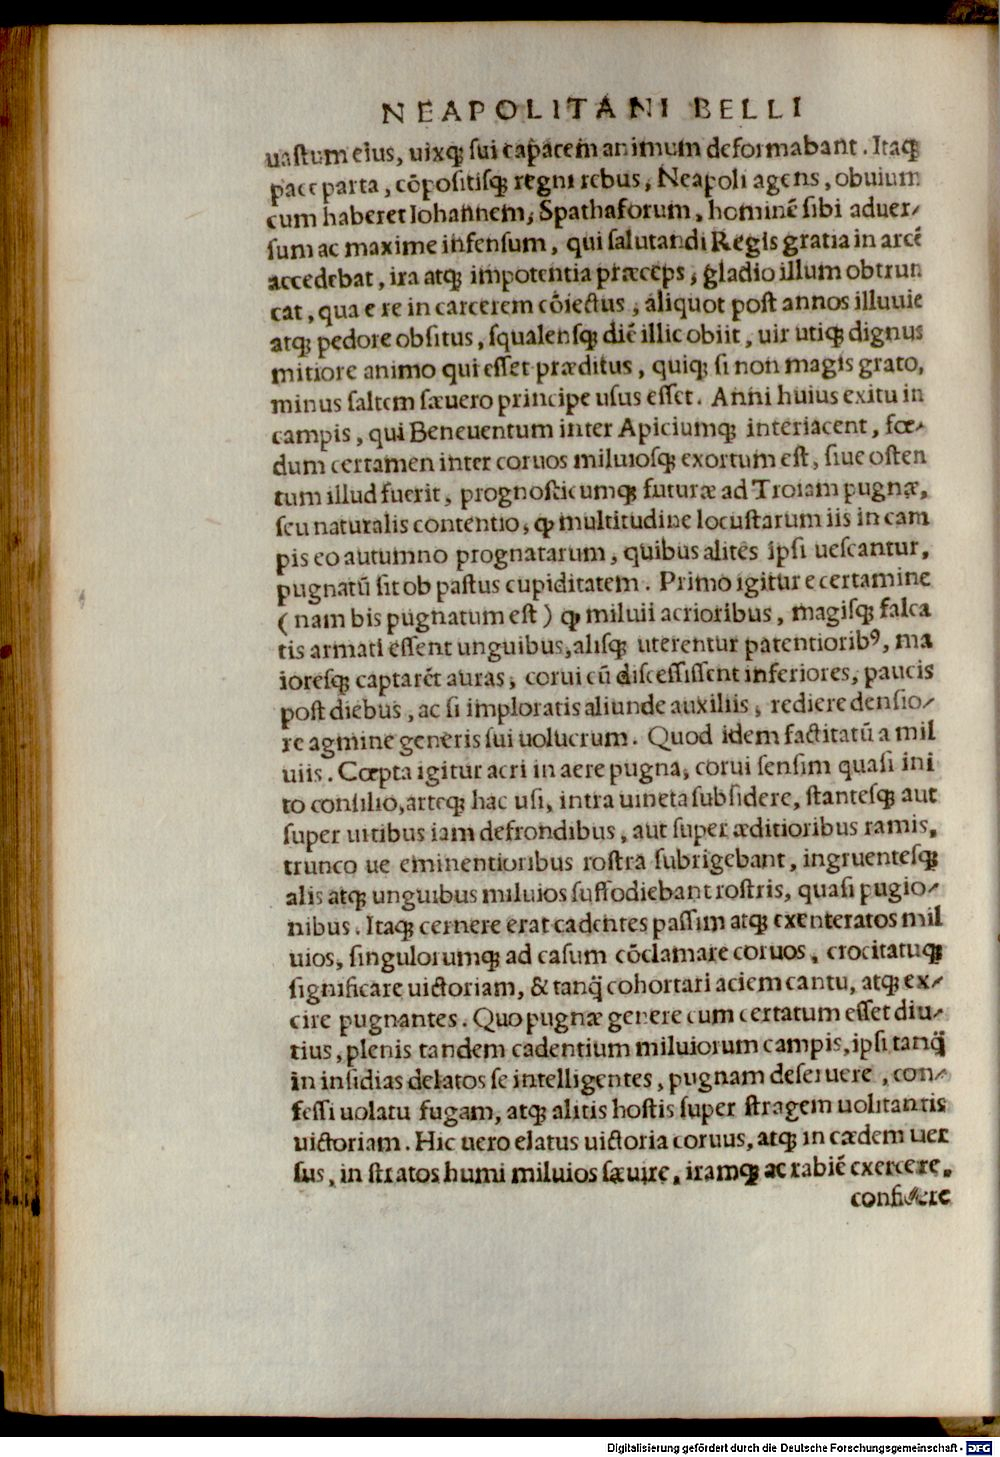 NEAPOLITANI BELLI
uastum eius, uixq; sui capacem animum deformabant. Itaq;
pace parta, cōpositisq; regni rebus, Neapoli agens, obuium
cum haberet Iohannem, Spathaforum, hominē sibi aduer-
sum ac maxime infensum, qui salutandi Regis gratia in arcē
accedebat, ira atq; impotentia præceps, gladio illum obtrun
cat, qua e re in carcerem cōiectus, aliquot post annos illuuie
atq; pedore obsitus, squalensq; diē illic obiit, uir utiq; dignus
mitiore animo qui esset præditus, quiq; si non magis grato,
minus saltem sæuero principe usus esset. Anni huius exitu in
campis, qui Beneuentum inter Apiciumq; interiacent, fœ-
dum certamen inter coruos miluiosq; exortum est, siue osten
tum illud fuerit, prognosticumq; futuræ ad Troiam pugnæ,
seu naturalis contentio, ꝙ multitudine locustarum iis in cam
pis eo autumno prognatarum, quibus alites ipsi uescantur,
pugnatū sit ob pastus cupiditatem. Primo igitur e certamine
(nam bis pugnatum est) ꝙ miluii acrioribus, magisq; falca
tis armati essent unguibus, alisq; uterentur patentiorib⁹, ma
ioresq; captarēt auras, corui cū discessissent inferiores, paucis
post diebus, ac si imploratis aliunde auxiliis, rediere densio-
re agmine generis sui uolucrum. Quod idem factitatū a mil
uiis. Cœpta igitur acri in aere pugna, corui sensim quasi ini
to consilio, arteq; hac usi, intra uineta subsidere, stantesq; aut
super uitibus iam defrondibus, aut super æditioribus ramis,
trunco ue eminentioribus rostra subrigebant, ingruentesq;
alis atq; unguibus miluios suffodiebant rostris, quasi pugio-
nibus. Itaq; cernere erat cadentes passim atq; exenteratos mil
uios, singulorumq; ad casum cōclamare coruos, crocitatuq;
significare uictoriam, & tanq̄ cohortari aciem cantu, atq; ex-
cire pugnantes. Quo pugnæ genere cum certatum esset diu-
tius, plenis tandem cadentium miluiorum campis, ipsi tanq̄
in insidias delatos se intelligentes, pugnam deseruere, con-
fessi uolatu fugam, atq; alitis hostis super stragem uolitantis
uictoriam. Hic uero elatus uictoria coruus, atq; in cædem uer
sus, in stratos humi miluios sæuire, iramq; ac rabiē exercere,
confidere
Digitalisierung gefördert durch die Deutsche Forschungsgemeinschaft - DFG